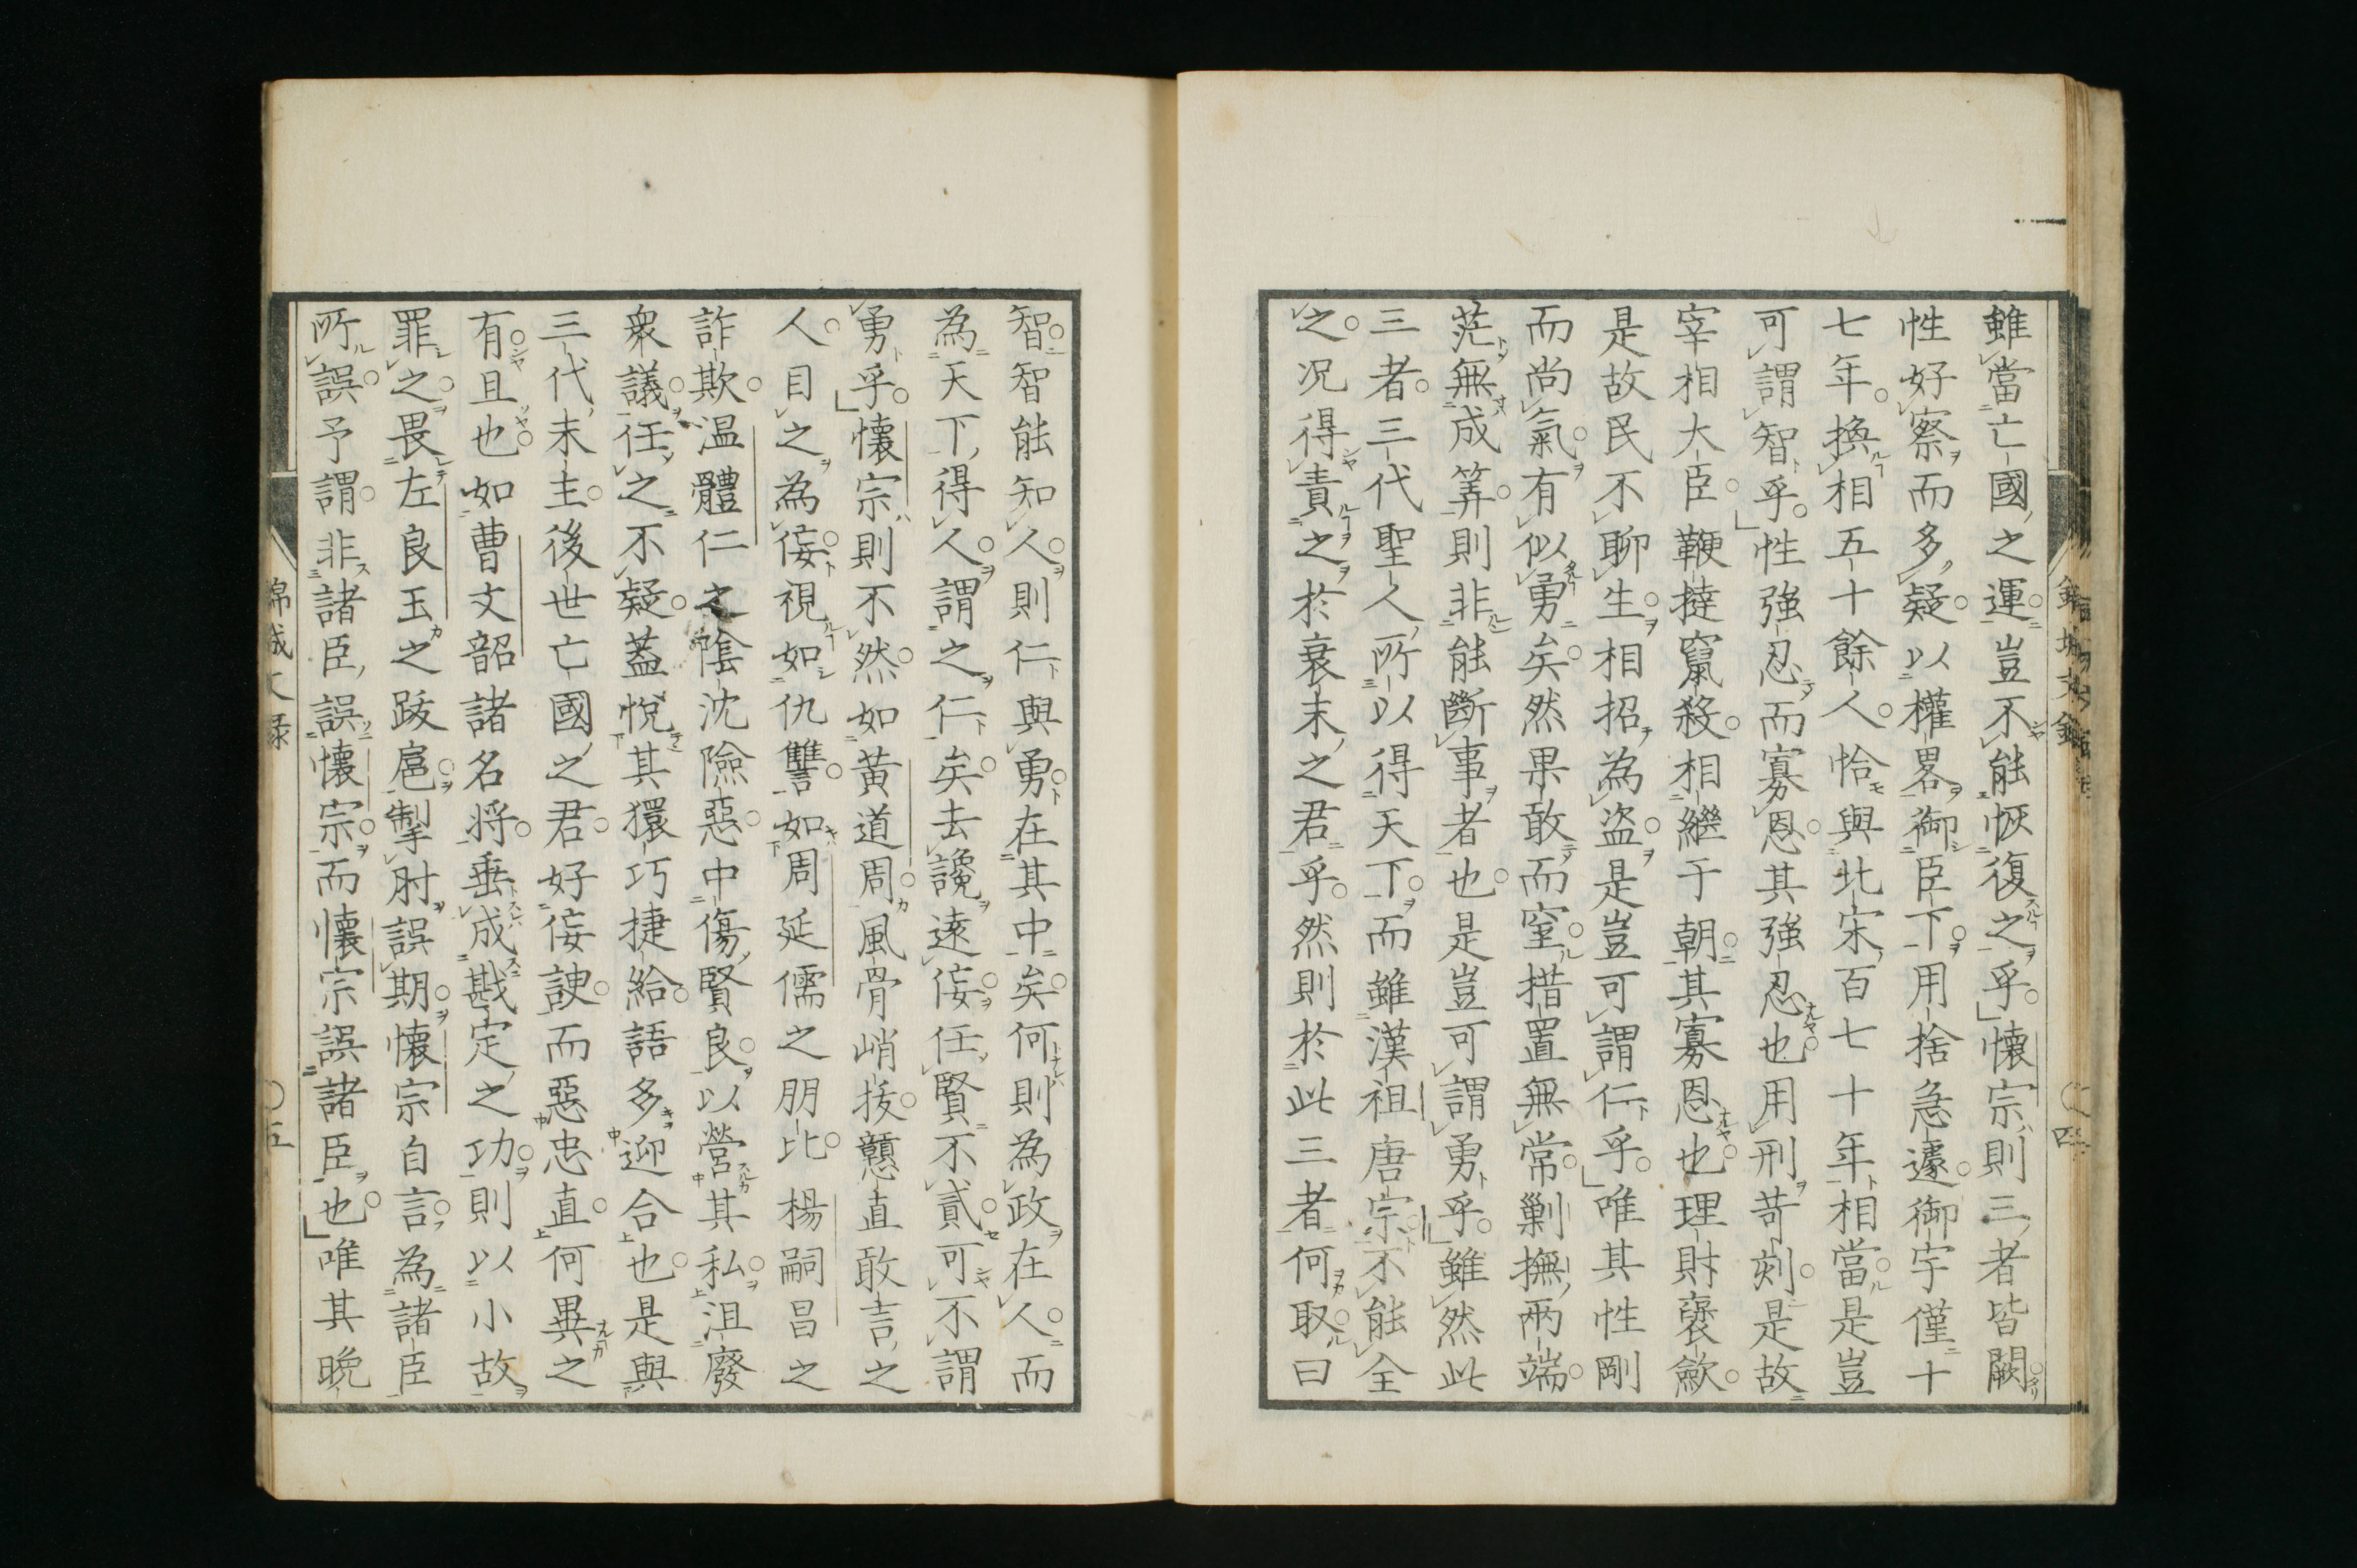 雖當亡國之運豈不能恢復之乎懷宗則三者皆闕
性好察而多疑以權畧御臣下用捨急遽御宇僅十
七年換相五十餘人恰與北宋百七十年相當是豈
可謂智乎性強忍而寡恩其強忍也用刑苛刻是故
宰相大臣鞭撻竄殺相繼于朝其寡恩也理財裒歛
是故民不聊生相招為盜是豈可謂仁乎唯其性剛
而尚氣有似勇矣然果敢而窒措置無常剿撫兩端
茫無成筭則非能斷事者也是豈可謂勇乎雖然此
三者三代聖人所以得天下而雖漢祖唐宗不能全
之况得責之於衰末之君乎然則於此三者何取曰
智智能知人則仁與勇在其中矣何則為政在人而
為天下得人謂之仁矣去讒遠佞任賢不貳可不謂
勇乎懷宗則不然如黃道周風骨峭拔戇直敢言之
人目之為佞視如仇讐如周延儒之朋比楊嗣昌之
詐欺溫體仁之陰沈險惡中傷賢良以營其私沮廢
衆議任之不疑蓋悅其獧巧捷給語多迎合也是與
三代末主後世亡國之君好佞諛而惡忠直何異之
有且也如曹文韶諸名將垂成戡定之功則以小故
罪之畏左良玉之跋扈掣肘誤期懷宗自言為諸臣
所誤予謂非諸臣誤懷宗而懷宗誤諸臣也唯其晚